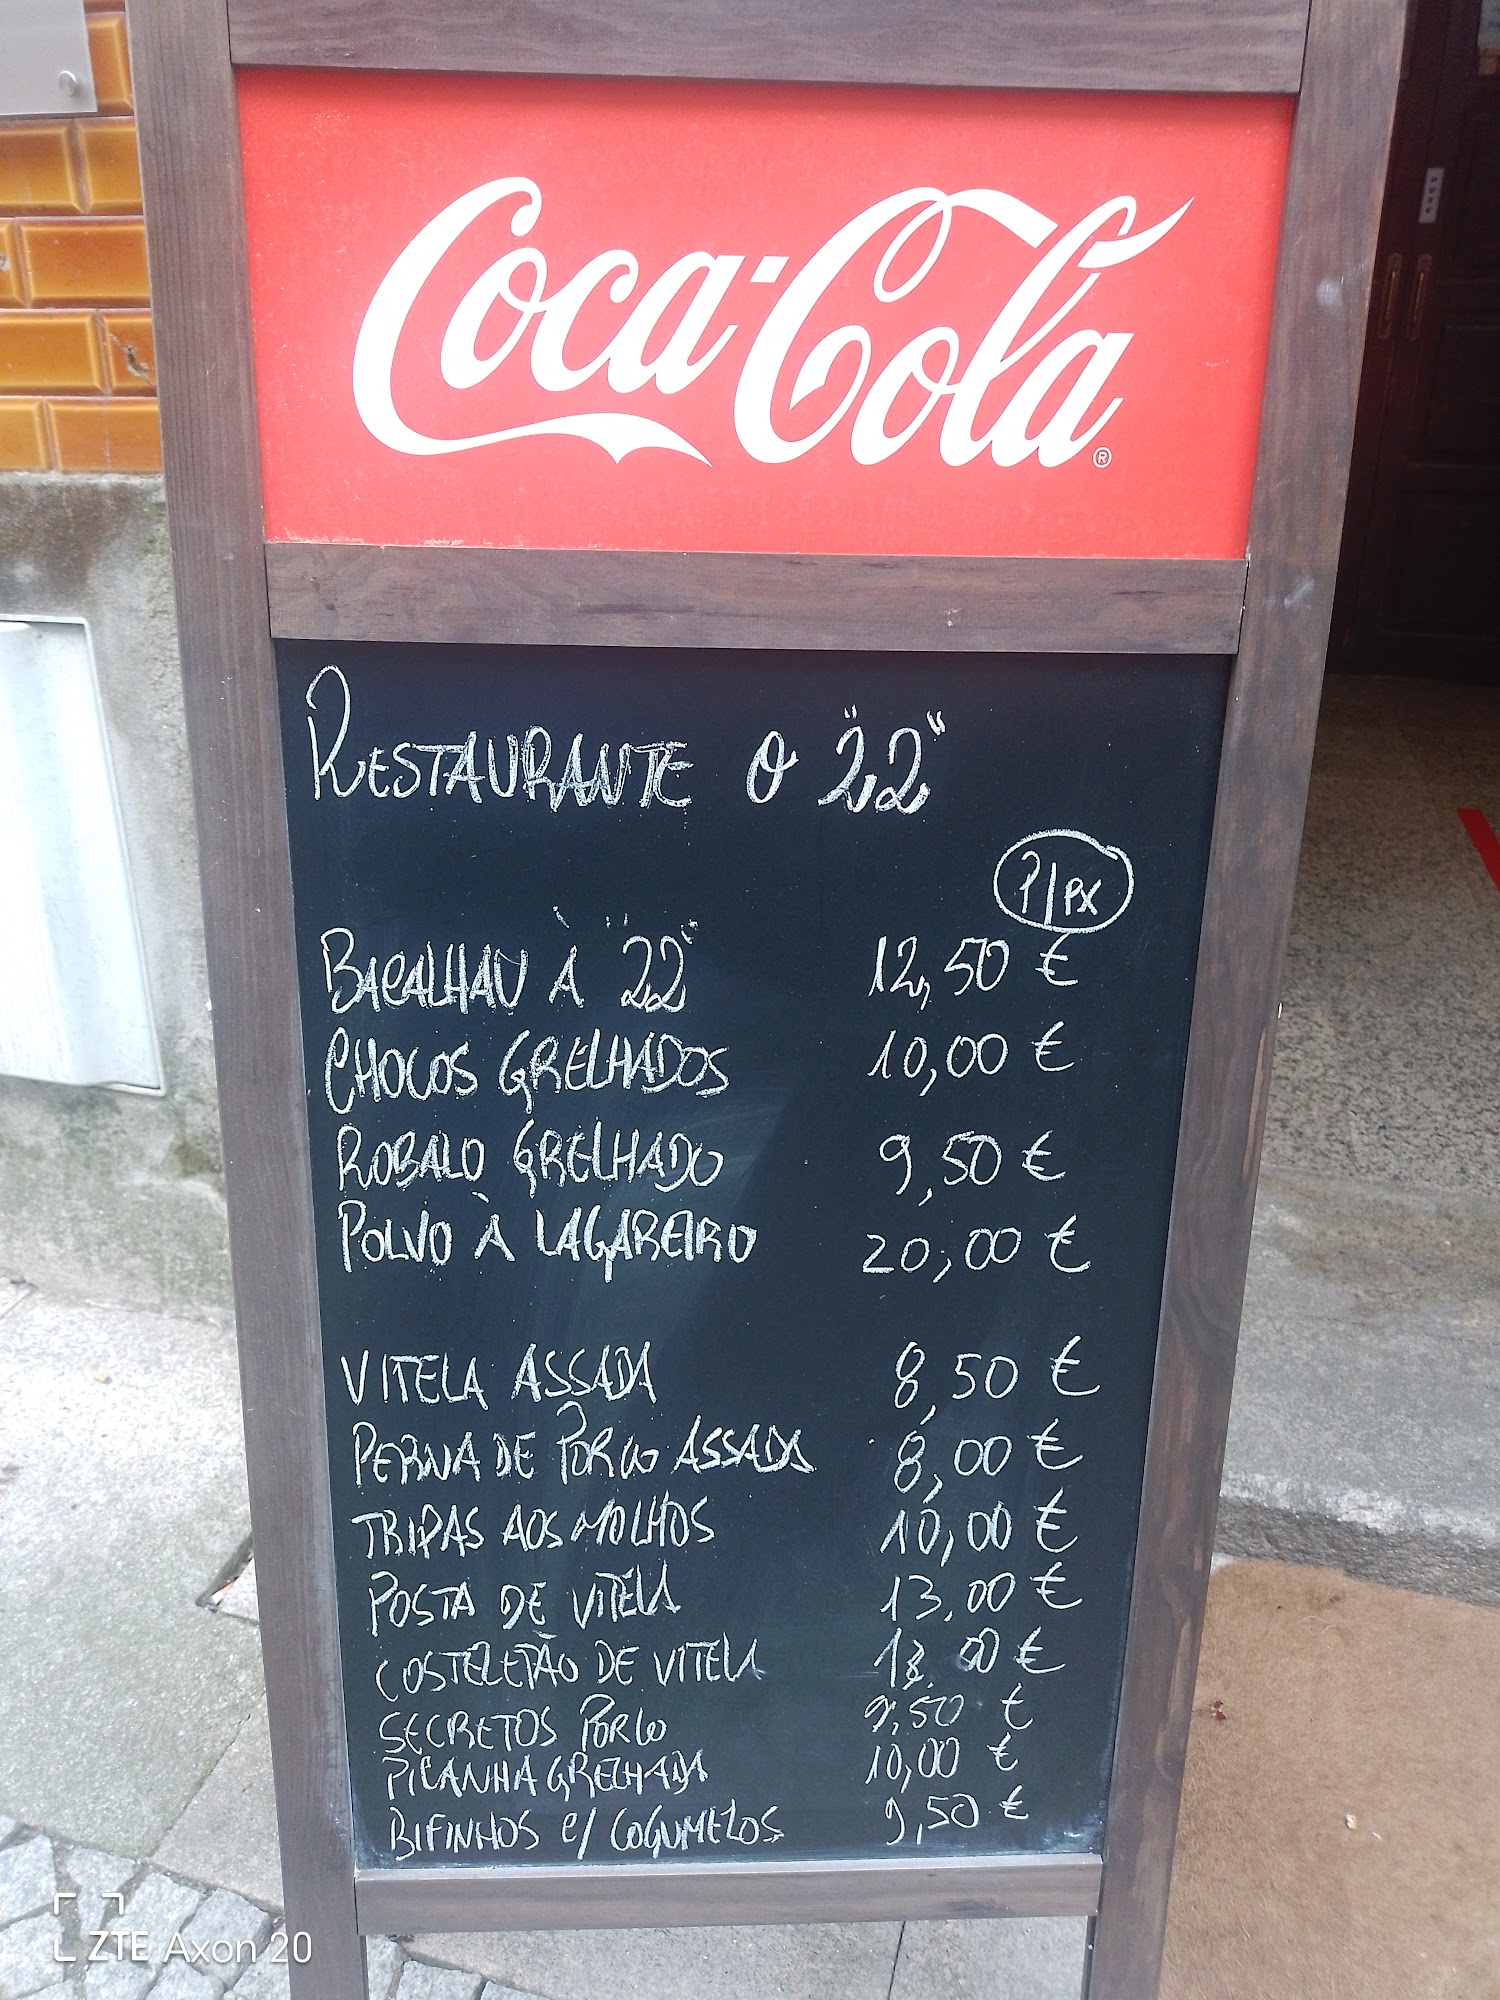 Coca-Cola®
RESTAURANTE O "22"
P/PX
BACALHAU À "22" 12,50 €
CHOCOS GRELHADOS 10,00 €
ROBALO GRELHADO 9,50 €
POLVO À LAGAREIRO 20,00 €
VITELA ASSADA 8,50 €
PERNA DE PORCO ASSADA 8,00 €
TRIPAS AOS MOLHOS 10,00 €
POSTA DE VITELA 13,00 €
COSTELETÃO DE VITELA 13,00 €
SECRETOS PORCO 9,50 €
PICANHA GRELHADA 10,00 €
BIFINHOS C/ COGUMELOS 9,50 €
ZTE Axon 20